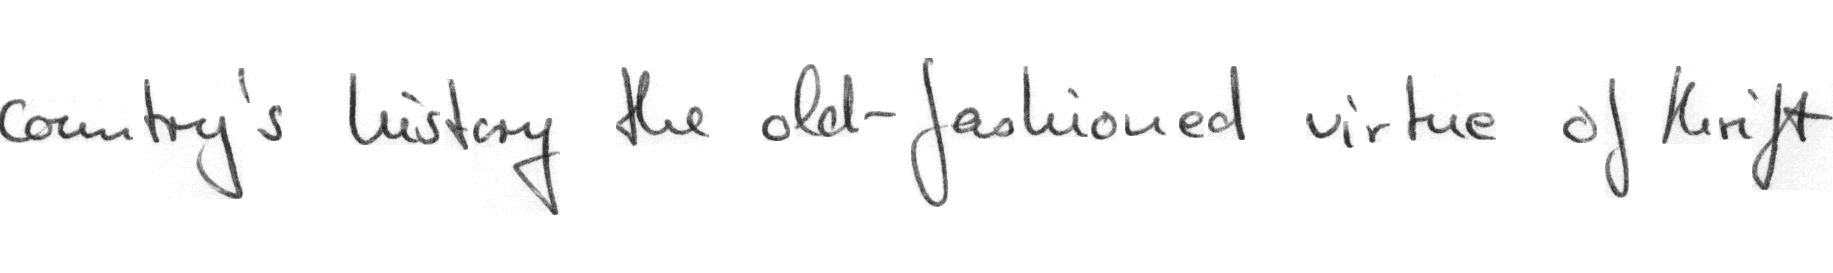 country's history the old-fashioned virtue of thrift